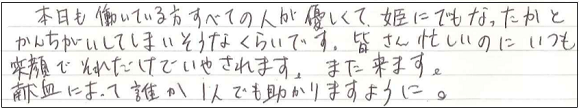 本日も働いている方すべての人が優しくて、姫にでもなったかと
かんちがいしてしまいそうなくらいです。皆さん忙しいのにいつも
笑顔でそれだけでいやされます。また来ます。
献血によって誰か1人でも助かりますように。